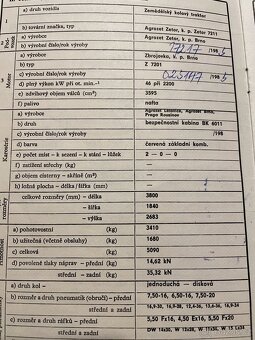 a) druh vozidla Zemědělský kolový traktor
b) tovární značka, typ Agrozet Zetor, k. p. Zetor 7211
a) výrobce Agrozet Zetor, k. p. Brno
b) výrobní číslo/rok výroby 17217 /198 6
a) výrobce Zbrojovka, k. p. Brno
b) typ Z 7201
c) výrobní číslo/rok výroby /198 6
d) plný výkon kW při ot. min.
46 při 2200
e) zdvihový objem válců (cm³) 3595
f) palivo nafta
a) výrobce Agrozet Brno
b) druh bezpečnostní kabina BK 6011
c) výrobní číslo/rok výroby /198
d) barva červená základní komb.
e) počet míst – k sezení – k stání – lůžek 2 — 0 — 0
f) zatížení střechy (kg)
g) objem cisterny – skříně (m³)
h) ložná plocha – délka/šířka (mm)
celkové rozměry – délka (mm) 3800
– šířka (mm) 1840
– výška (mm) 2683
a) pohotovostní (kg) 3410
b) užitečná (včetně obsluhy) (kg) 1680
c) celková (kg) 5090
d) povolené tlaky náprav – přední 14,62 kN
střední a zadní 35,32 kN
a) druh kol – jednoduchá – disková
b) rozměr a druh pneumatik (obručí) – přední 7,50-16, 6,50-16, 7,50-20
střední a zadní
c) rozměr a druh ráfků – přední 5,50 Fx16, 4,50 Ex16, 5,50 Fx20
střední a zadní